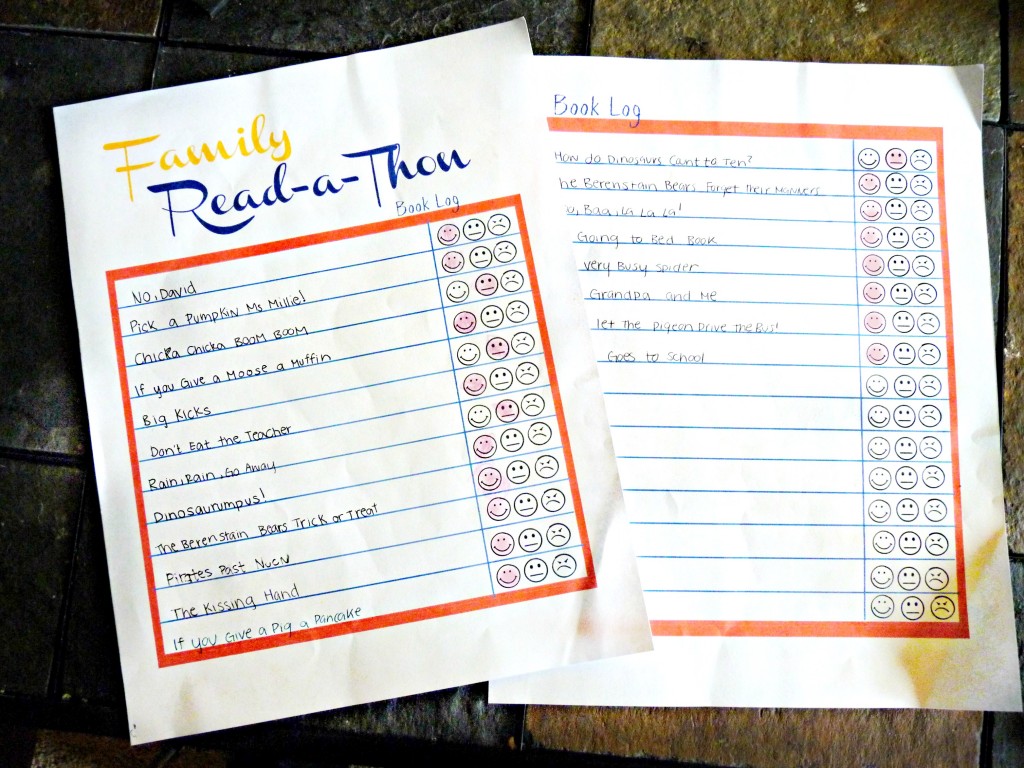 Family
Read-a-Thon
Book Log
No, David
Pick a Pumpkin Ms Millie!
Chicka Chicka BOOM BOOM
If you Give a Moose a Muffin
Big Kicks
Don't Eat the Teacher
Rain, Rain, Go Away
Dinosaurumpus!
The Berenstain Bears Trick or Treat
Pirates Past Noon
The Kissing Hand
If you Give a Pig a Pancake
Book Log
How do Dinosaurs Count to Ten?
he Berenstain Bears Forget their Manners
Baa, La La La!
Going to Bed Book
very Busy spider
Grandpa and Me
let the pigeon Drive the Bus!
Goes to School